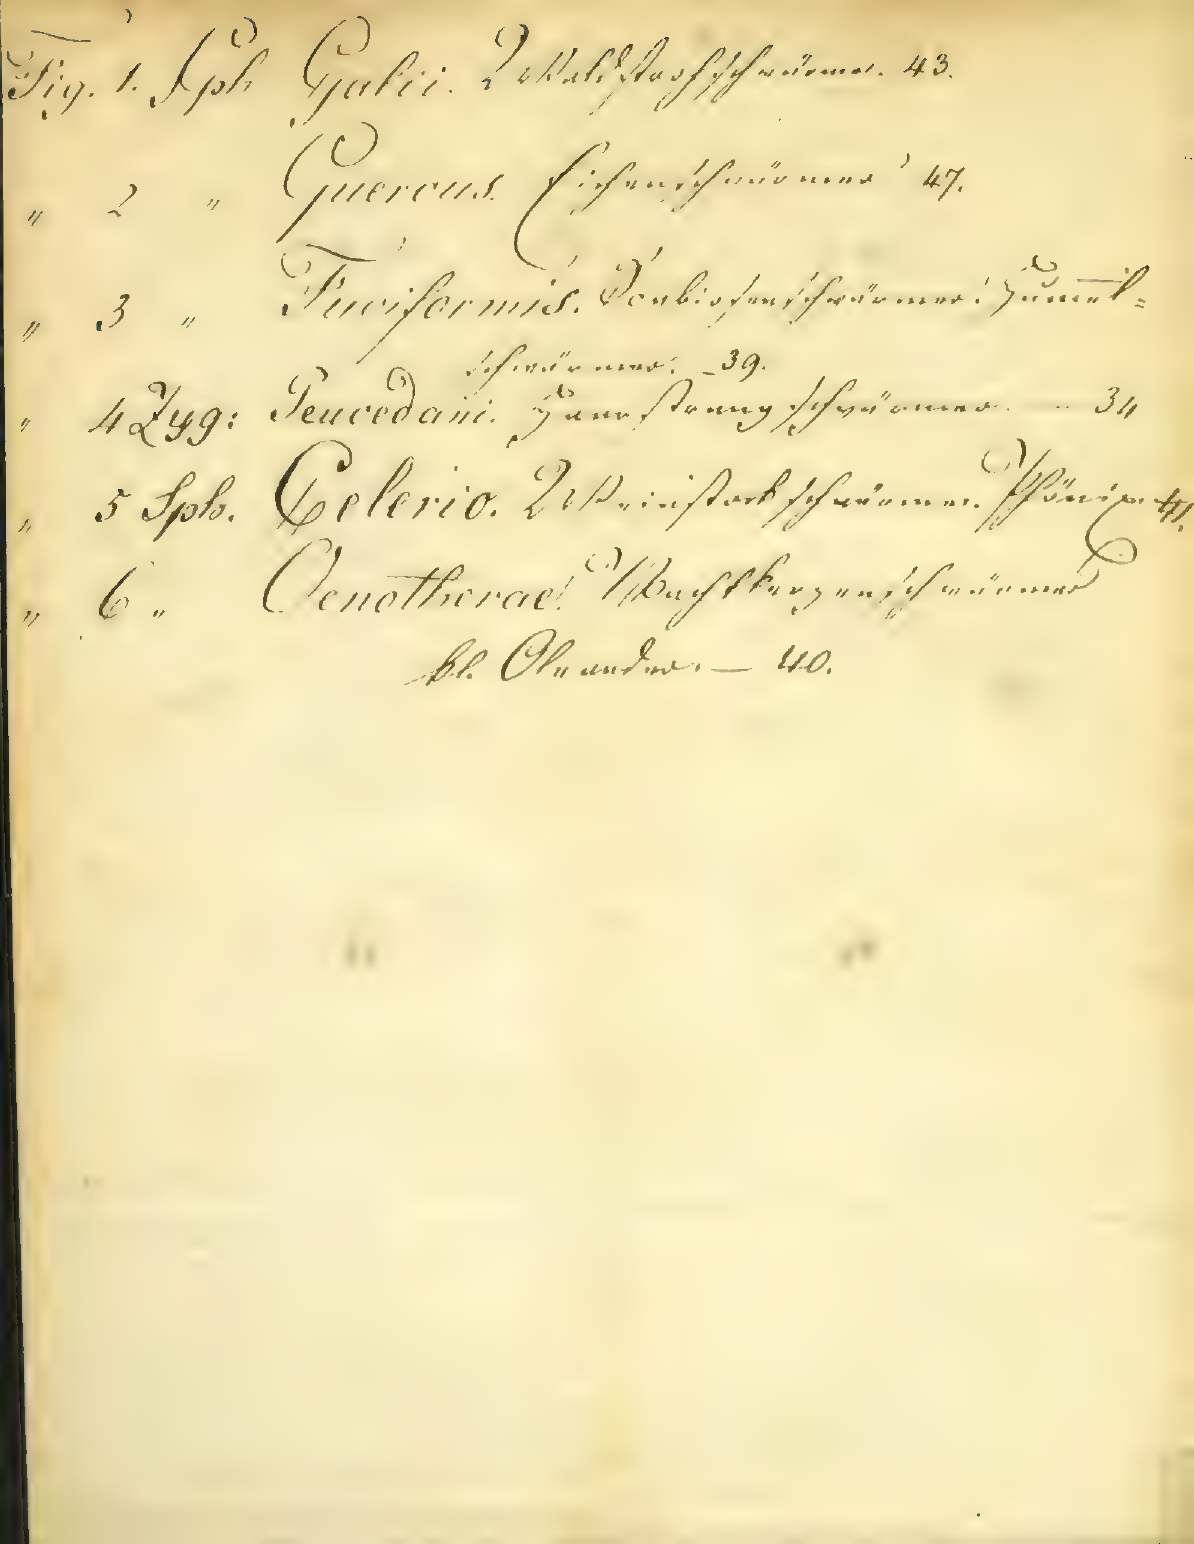 Fig. 1. Sph Galii. Waldstrohschwärmer. 43.
" 2 " Quercus. Eichenschwärmer 47.
" 3 " Fuciformis. Scabiosenschwärmer: Hummel=
schwärmer: — 39.
" 4 Zyg: Peucedani. Haarstrangschwärmer. — 34
" 5 Sph. Celerio. Weinstockschwärmer. Phönix 41.
" 6 " Oenotherae. Nachtkerzenschwärmer
kl. Oleander. — 40.